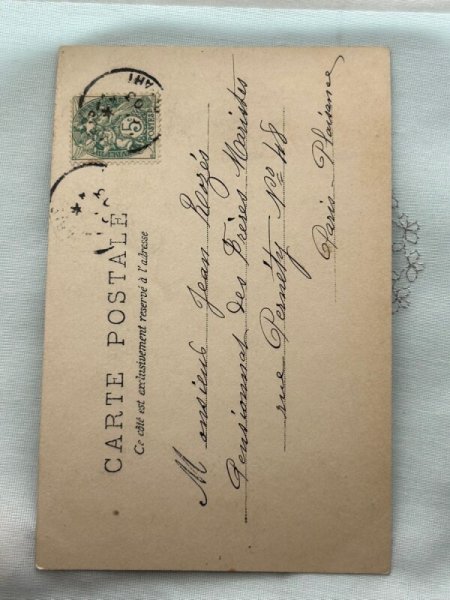 CARTE POSTALE
Ce côté est exclusivement réservé à l'adresse
5
Monsieur Jean
Pensionnat des Frères Maristes
rue Pernéty No 48
Paris-Plaisance